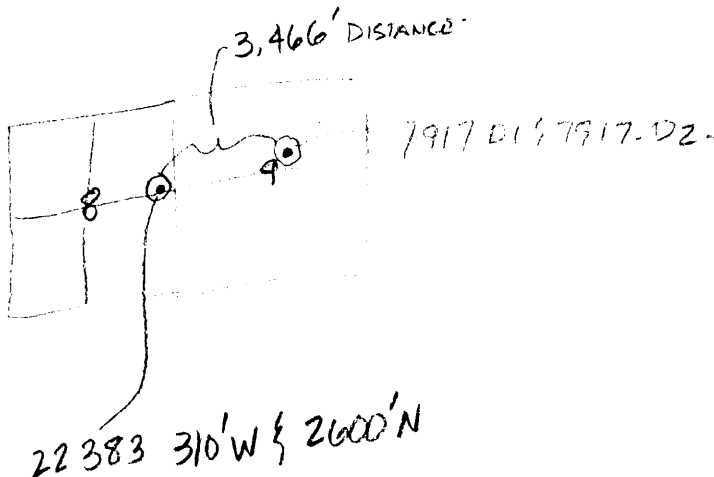 3,466' DISTANCE
7917 D1 & 7917-D2-
8
9
22383 310'W & 2600'N